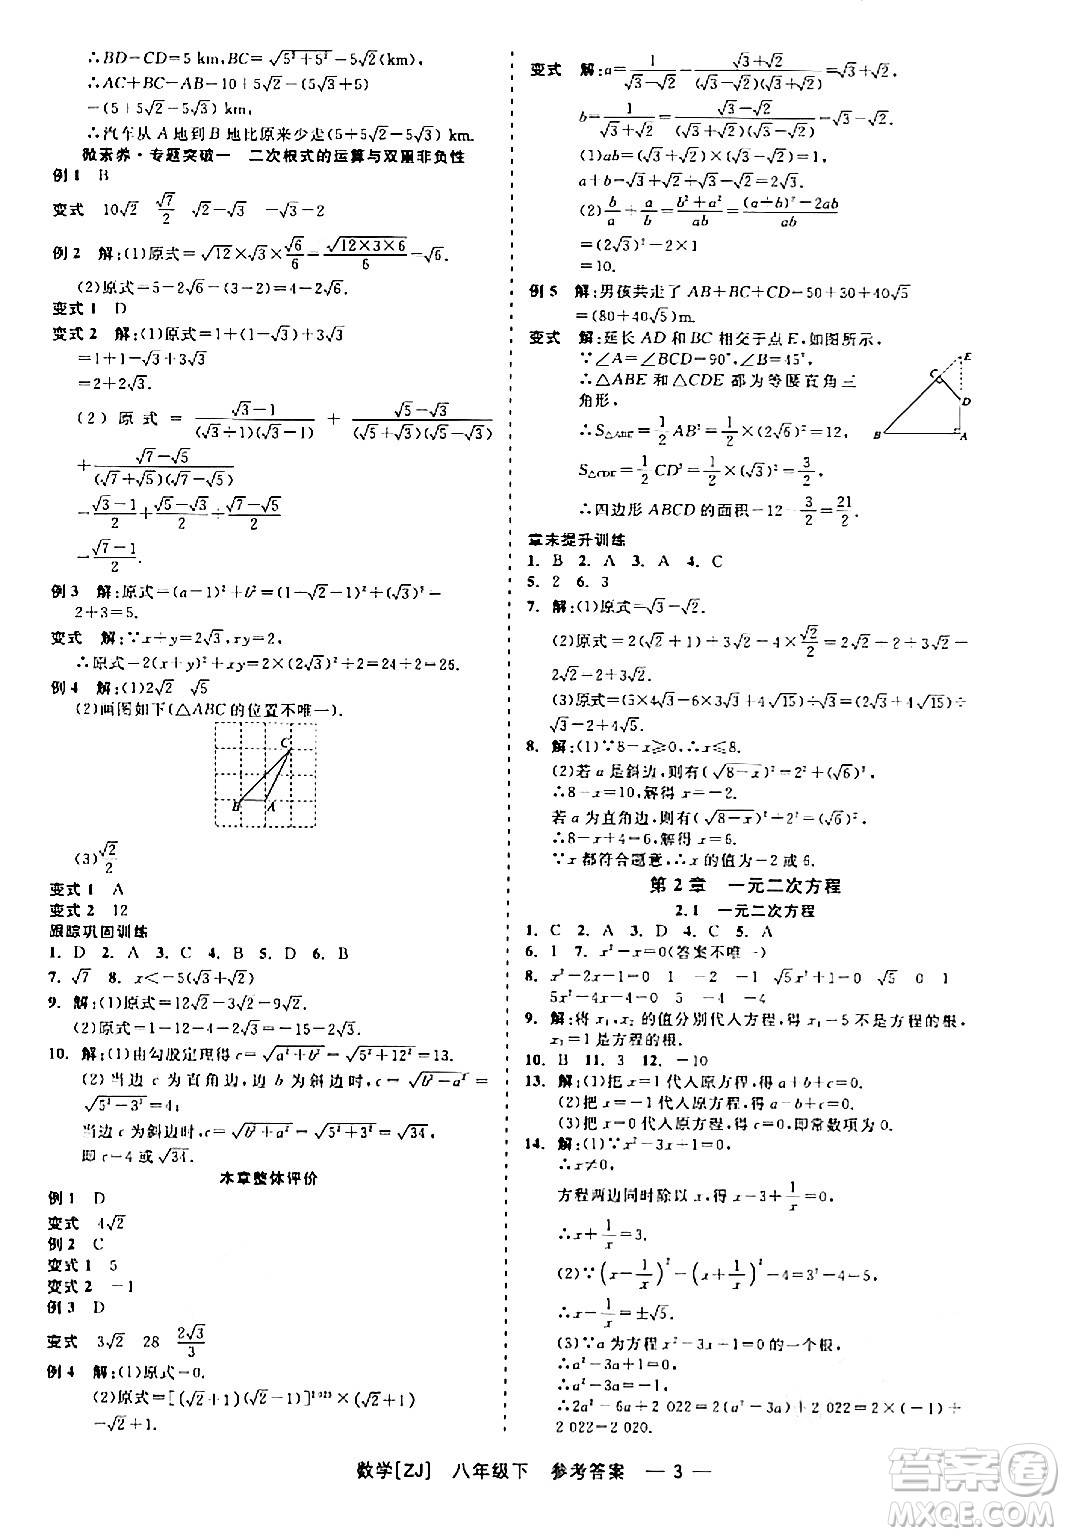 ∴BD=CD=5 km,BC=√(5²+5²)=5√2(km),
∴AC+BC-AB=10+5√2-(5√3+5)
=(5+5√2-5√3) km,
∴汽车从 A 地到 B 地比原来少走(5+5√2-5√3)km.
微素养·专题突破一 二次根式的运算与双重非负性
例1 B
变式 10√2 √7/2 √2-√3 -√3-2
例2 解:(1)原式=√12×√3×√6/6=√(12×3×6)/6=√6.
(2)原式=5-2√6-(3-2)=4-2√6.
变式1 D
变式2 解:(1)原式=1+(1-√3)+3√3
=1+1-√3+3√3
=2+2√3.
(2)原式=(√3-1)/((√3+1)(√3-1))+(√5-√3)/((√5+√3)(√5-√3))
+(√7-√5)/((√7+√5)(√7-√5))
=(√3-1)/2+(√5-√3)/2+(√7-√5)/2
=(√7-1)/2.
例3 解:原式=(a-1)²+b²=(1-√2-1)²+(√3)²=
2+3=5.
变式 解:∵x+y=2√3,xy=1,
∴原式=2(x+y)²+xy=2×(2√3)²+1=25.
例4 解:(1)2√2 √5
(2)画图如下(△ABC的位置不唯一).
C
B A
(3)√2/2
变式1 A
变式2 12
跟踪巩固训练
1. D 2. A 3. C 4. D 5. B 6. B
7. √7 8. x<-5(√3+√2)
9. 解:(1)原式=12√2-3√2=9√2.
10. 解:(1)由勾股定理得c=√(a²+b²)=√(5²+12²)=13.
(2)当边 c 为直角边,边 b 为斜边时,c=√(b²-a²)=
√(5²-3²)=4;
当边 c 为斜边时,c=√(b²+a²)=√(5²+3²)=√34,
即c=4或√34.
本章整体评价
例1 D
变式 4√2
例2 C
变式1 5
变式2 -1
例3 D
变式 3√2 28 2√3/3
例4 解:(1)原式=0.
(2)原式=[(√2+1)(√2-1)]²⁰²³×(√2+1)
=√2+1.
变式 解:a=1/(√3-√2)=(√3+√2)/((√3-√2)(√3+√2))=√3+√2,
(1)ab=(√3+√2)×(√3-√2)=1,
a+b=√3+√2+√3-√2=2√3.
(2)b/a+a/b=(b²+a²)/ab=((a+b)²-2ab)/ab
=(2√3)²-2×1
=10.
例5 解:男孩共走了AB+BC+CD=50+30+40√5
=(80+40√5)m.
变式 解:延长 AD 和 BC 相交于点 E,如图所示,
∵∠A=∠BCD=90°,∠B=45°,
∴△ABE 和△CDE 都为等腰直角三
角形,
C E
D
B A
∴S△ABE=1/2AB²=1/2×(2√6)²=12,
S△CDE=1/2CD²=1/2×(√3)²=3/2,
∴四边形ABCD的面积=12-3/2=21/2.
章末提升训练
1. B 2. A 3. A 4. C
5. 2 6. 3
(3)原式=(5×4√3-6×3√3+4√15)÷√3=(2√3+4√15)÷
√3=2+4√5.
8. 解:(1)∵8-x≥0,∴x≤8.
(2)若a是斜边,则有(√(8-x))²=2²+(√6)²,
∴8-x=10,解得x=-2.
若a为直角边,则有(√(8-x))²+2²=(√6)²,
∴8-x+4=6,解得x=6.
∵x都符合题意,∴x的值为-2或6.
第2章 一元二次方程
2.1 一元二次方程
1. C 2. A 3. D 4. C 5. A
6. 1 7. x²-x=0(答案不唯一)
8. x²-2x-1=0 1 -2 -1 √5x²+1=0 √5 0 1
5x²-4x-4=0 5 -4 -4
9. 解:将x₁,x₂的值分别代入方程,得x₁=5不是方程的根,
x₂=1是方程的根.
10. B 11. 3 12. -10
13. 解:(1)把x=1代入原方程,得a+b+c=0.
(2)把x=-1代入原方程,得a-b+c=0.
(3)把x=0代入原方程,得c=0,即常数项为0.
14. 解:(1)∵x²-3x+1=0,
∴x≠0,
方程两边同时除以x,得x-3+1/x=0,
∴x+1/x=3.
(2)∵(x-1/x)²=(x+1/x)²-4=3²-4=5,
∴x-1/x=±√5.
(3)∵a为方程x²-3x+1=0的一个根,
∴a²-3a=-1,
∴2a²-6a+2 022=2(a²-3a)+2 022=2×(-1)+
2 022=2 020.
数学[ZJ] 八年级下 参考答案 — 3 —
答案圈
MXQE.COM